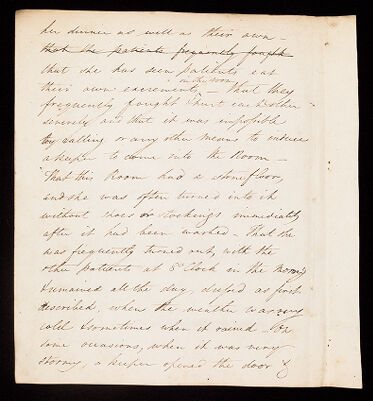 her dinner as well as their own –
that the patients frequently fought
that she has seen patients eat
in the room
their own excrement, – That they
frequently fought & hurt each other
severely and that it was impossible
by calling or any other means to induce
a keeper to come into the Room –
That this Room had a stone floor,
and she was often turned into it
without shoes or stockings immediately
after it had been washed – That she
was frequently turned out, with the
other patients at 8 o'Clock in the Morng
& remained all the day, dressed as first
described, when the weather was very
cold & sometimes when it rained – On
some occasions, when it was very
stormy, a keeper opened the door &